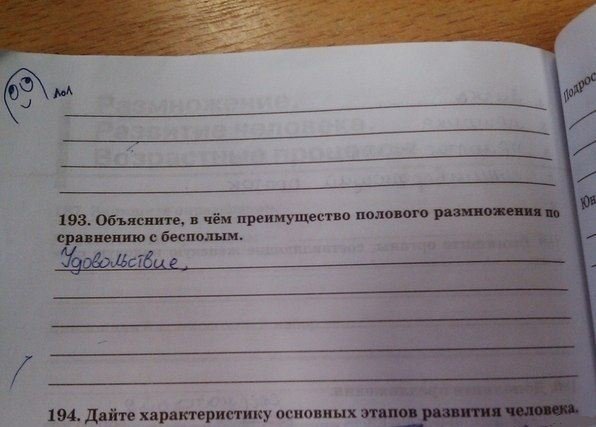 лол
Размножение.
Развитие человека.
Возрастные процессы
193. Объясните, в чём преимущество полового размножения по
сравнению с бесполым.
Удовольствие,
194. Дайте характеристику основных этапов развития человека.
Подрос
Юн